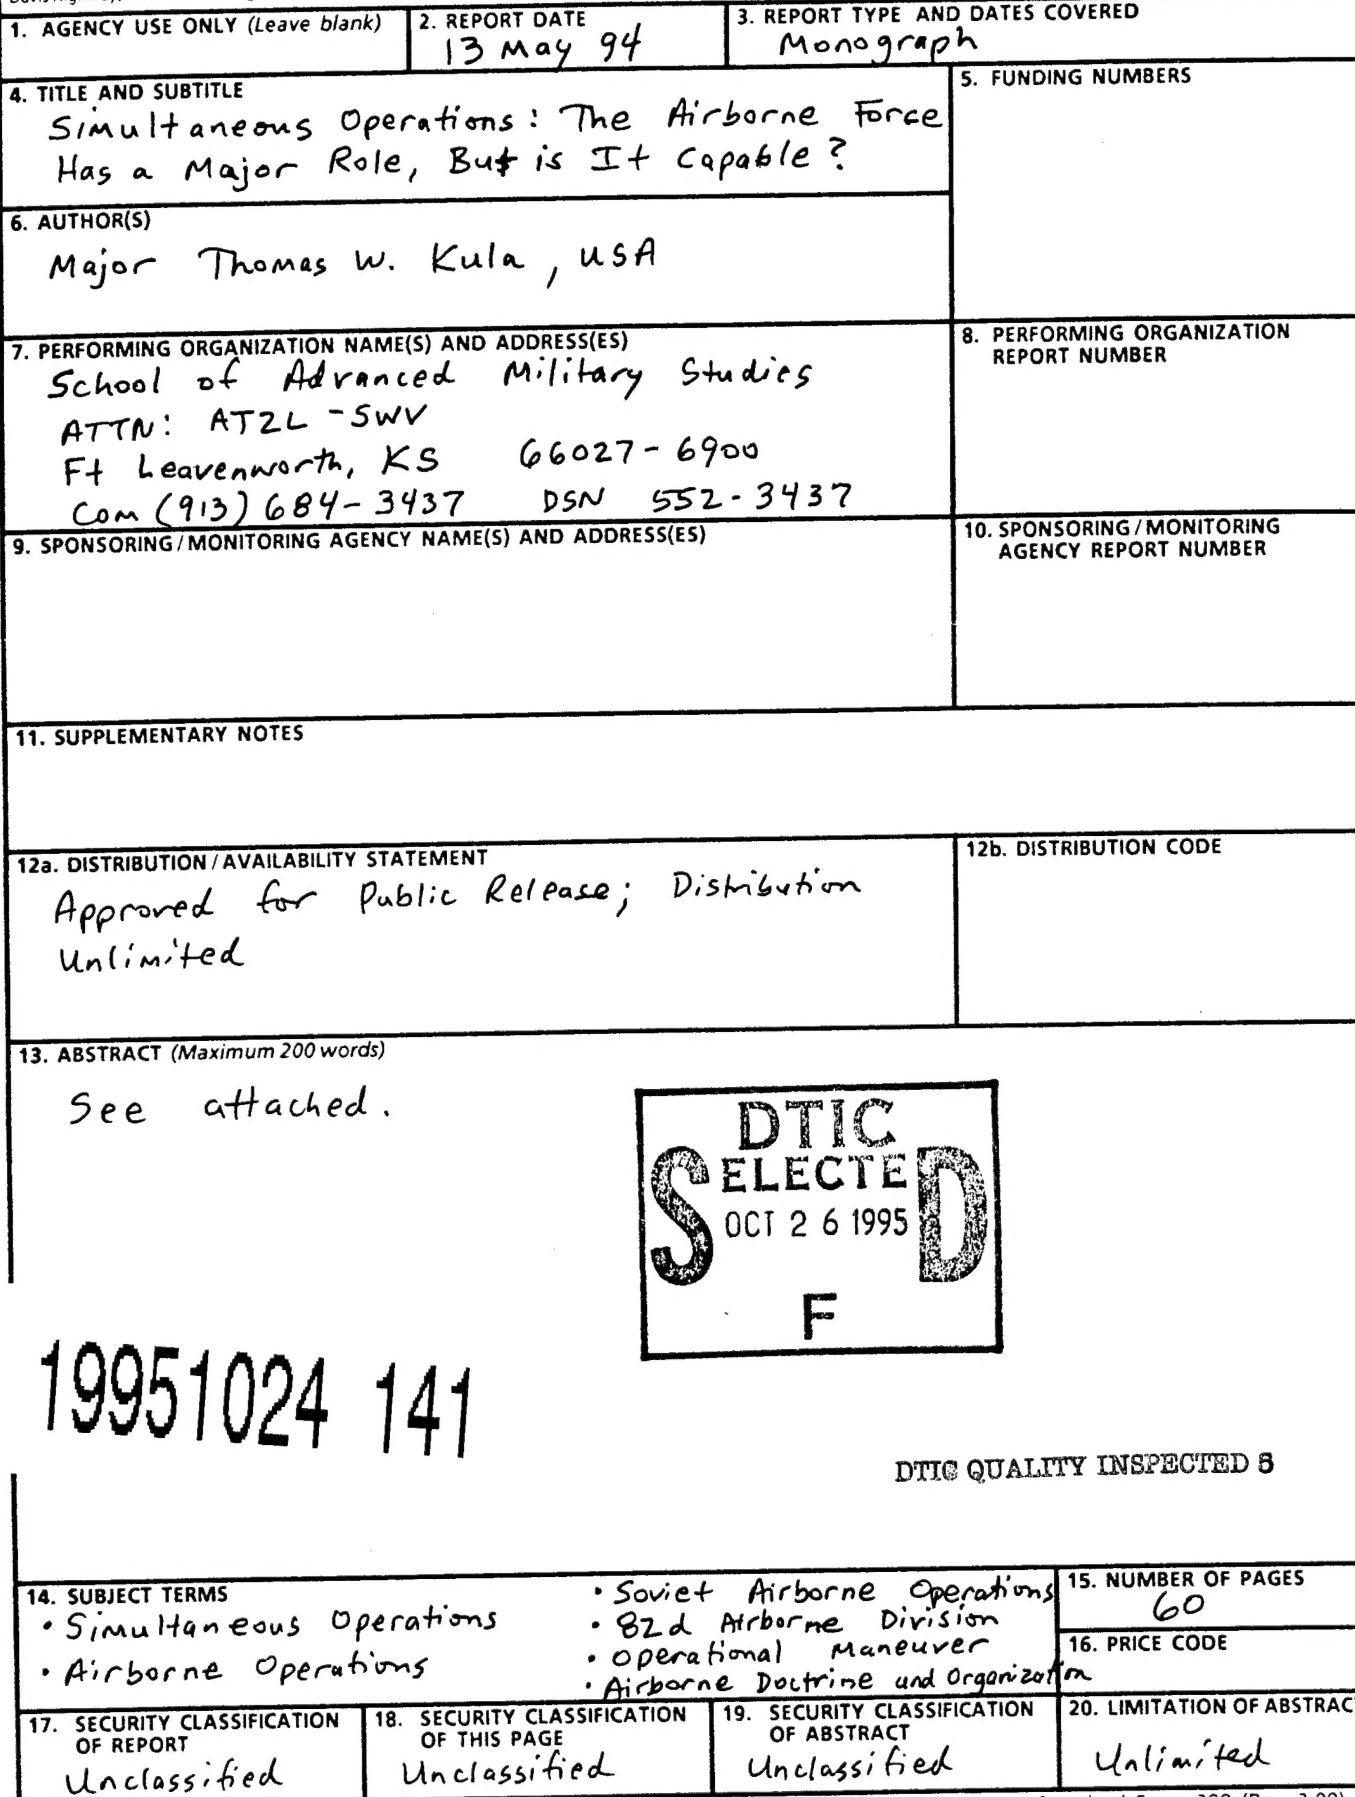 1. AGENCY USE ONLY (Leave blank)
2. REPORT DATE
13 May 94
3. REPORT TYPE AND DATES COVERED
Monograph
4. TITLE AND SUBTITLE
Simultaneous Operations: The Airborne Force
Has a Major Role, But is It Capable?
5. FUNDING NUMBERS
6. AUTHOR(S)
Major Thomas W. Kula, USA
7. PERFORMING ORGANIZATION NAME(S) AND ADDRESS(ES)
School of Advanced Military Studies
ATTN: ATZL-SWV
Ft Leavenworth, KS 66027-6900
Com (913) 684-3437 DSN 552-3437
8. PERFORMING ORGANIZATION
REPORT NUMBER
9. SPONSORING/MONITORING AGENCY NAME(S) AND ADDRESS(ES)
10. SPONSORING/MONITORING
AGENCY REPORT NUMBER
11. SUPPLEMENTARY NOTES
12a. DISTRIBUTION/AVAILABILITY STATEMENT
Approved for Public Release; Distribution
Unlimited
12b. DISTRIBUTION CODE
13. ABSTRACT (Maximum 200 words)
See attached.
DTIC
SELECTED
OCT 26 1995
F
19951024 141
DTIC QUALITY INSPECTED
14. SUBJECT TERMS
• Simultaneous Operations
• Airborne Operations
• Soviet Airborne Operations
• 82d Airborne Division
• Operational Maneuver
• Airborne Doctrine and Organization
15. NUMBER OF PAGES
60
16. PRICE CODE
17. SECURITY CLASSIFICATION
OF REPORT
Unclassified
18. SECURITY CLASSIFICATION
OF THIS PAGE
Unclassified
19. SECURITY CLASSIFICATION
OF ABSTRACT
Unclassified
20. LIMITATION OF ABSTRAC
Unlimited